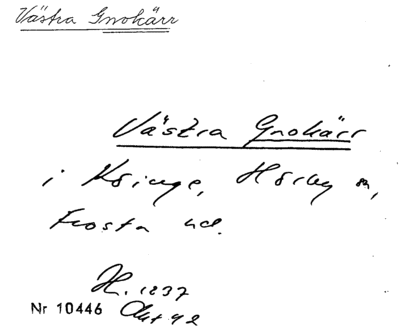 Västra Gnokärr
Västra Gnokärr
i Ksinge, Hörby sn,
Frosta hd.
H. 1237
Nr 10446 Akt 42